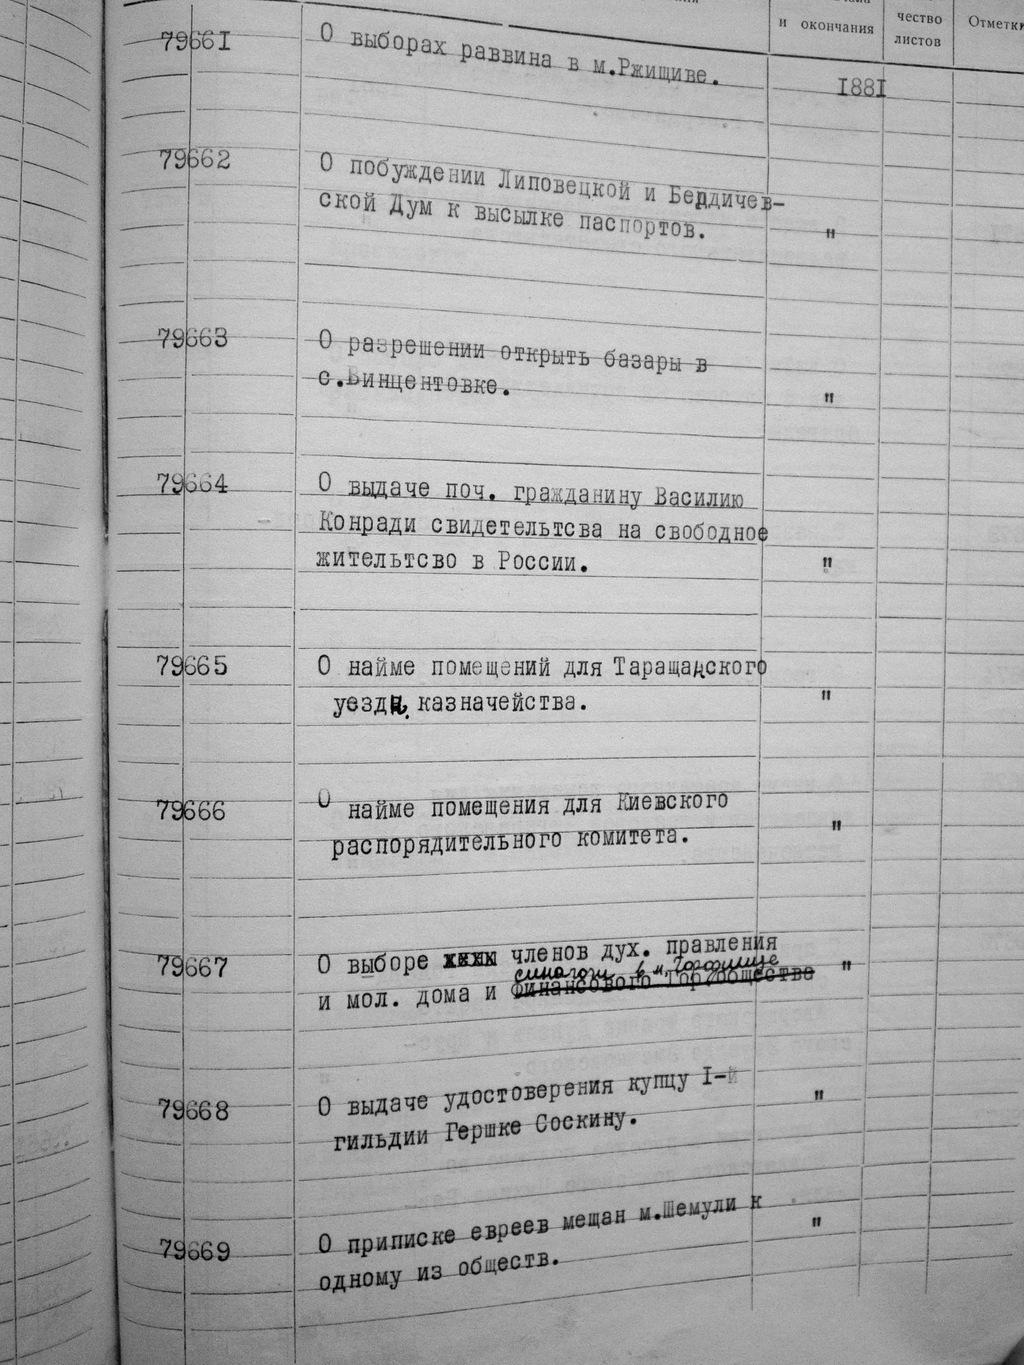 и окончания
чество
листов
Отметки
79661
О выборах раввина в м.Ржищиве.
1881
79662
О побуждении Липовецкой и Бердичев-
ской Дум к высылке паспортов.
"
79663
О разрешении открыть базары в
с.Винцентовке.
"
79664
О выдаче поч. гражданину Василию
Конради свидетельтсва на свободное
жительтсво в России.
"
79665
О найме помещений для Таращанского
уездн. казначейства.
"
79666
О найме помещения для Киевского
распорядительного комитета.
"
79667
О выборе членов дух. правления
синагоги в м. Городище
и мол. дома и Финансового Гор.общества
"
79668
О выдаче удостоверения купцу I-й
гильдии Гершке Соскину.
"
79669
О приписке евреев мещан м.Шемули к
одному из обществ.
"